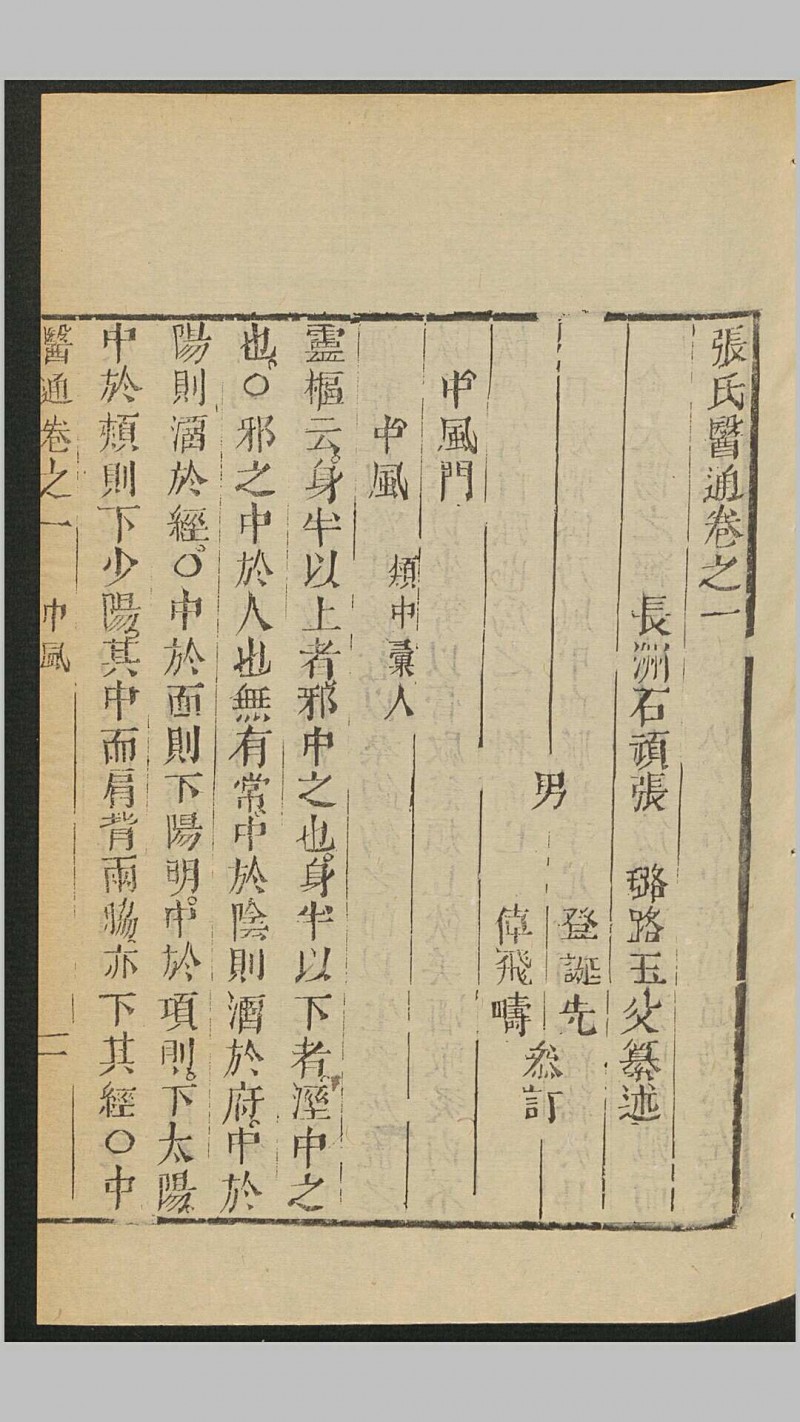 張氏醫通卷之一
長洲石頑張　璐路玉父纂述
男
登誕先
倬飛疇
叅訂
中風門
中風　類中彙入
靈樞云。身半以上者。邪中之也。身半以下者。溼中之
也。○邪之中於人也。無有常。中於陰則溜於府。中於
陽則溜於經。○中於面則下陽明。中於項則。下太陽
中於頰則下少陽。其中而肩背兩脇。亦下其經○中
醫通卷之一　中風　二